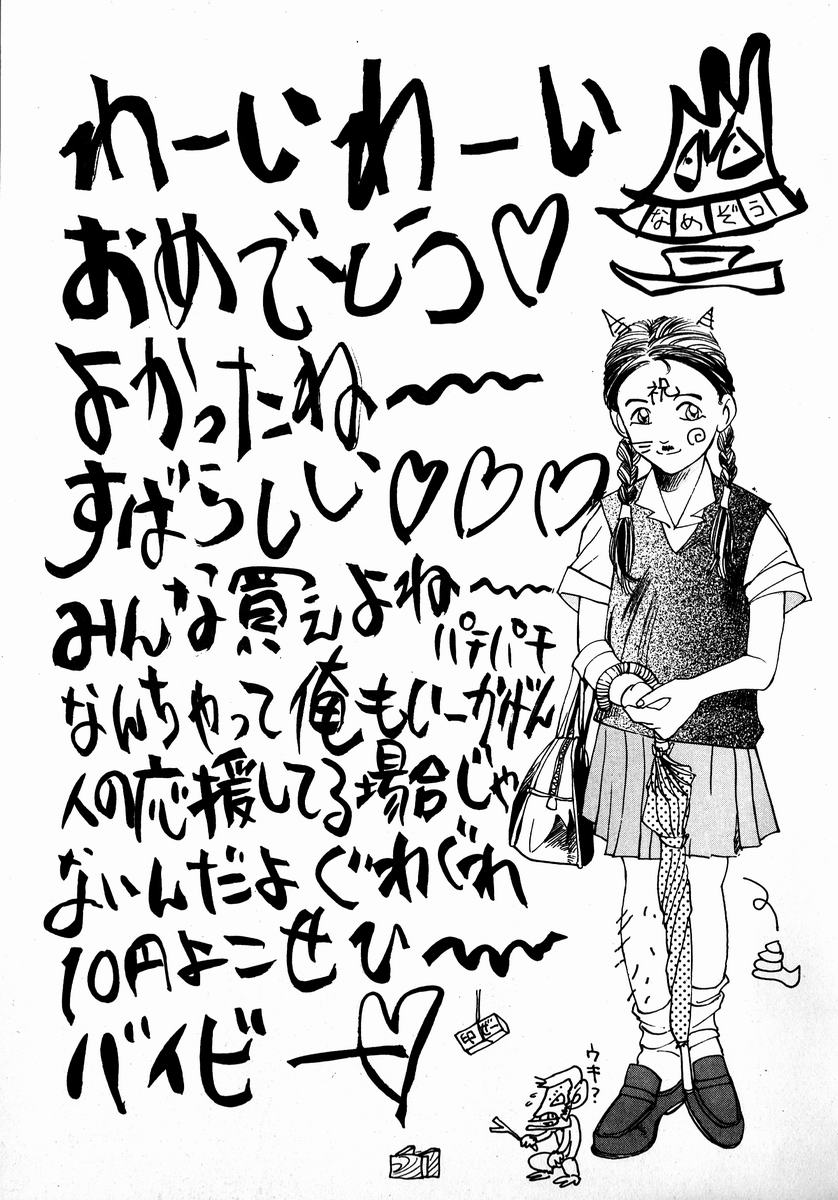 わーいわーい
なめぞう
おめでとう♡
よかったね〜〜
祝
すばらしい♡♡♡
みんな買えよね〜〜
パチパチ
なんちゃって俺もいーかげん
人の応援してる場合じゃ
ないんだよ
10円よこせひ〜〜
バイビー♡
ウキ?